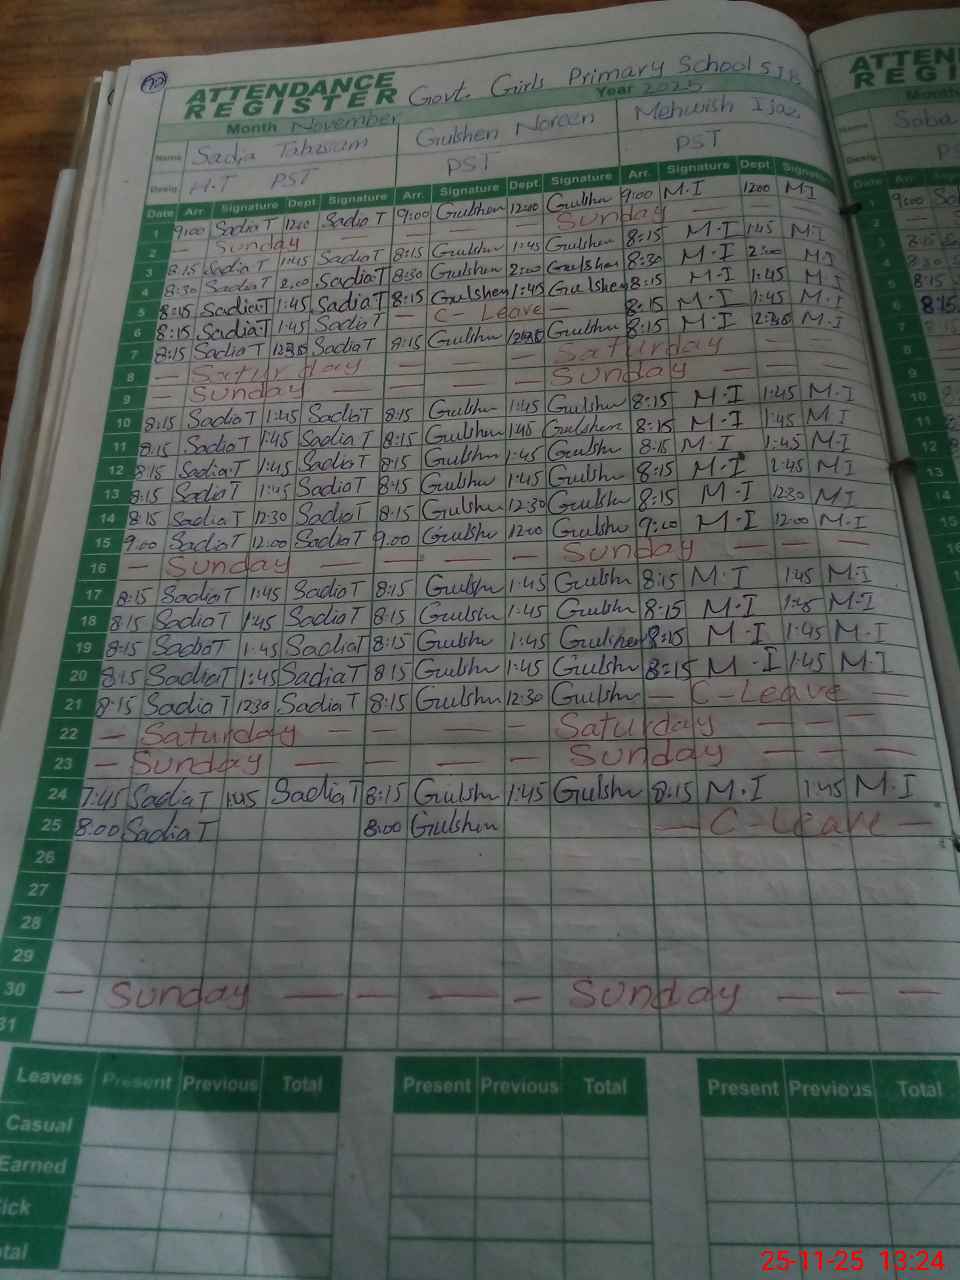 ATTENDANCE REGISTER Govt. Girls Primary School S.I.B
Month November Year 2025
Name Sadia Tabasum Gulshen Noreen Mehwish Ijaz
Desig H.T PST PST PST
Date Arr. Signature Dept Signature Arr. Signature Dept. Signature Arr. Signature Dept. Signature
1 9:00 Sadia T 12:00 Sadia T 9:00 Gulshen 12:00 Gulshn 9:00 M.I 12:00 M.I
2 — Sunday — — — — — Sunday — — —
3 8:15 Sadia T 1:45 Sadia T 8:15 Gulshn 1:45 Gulshen 8:15 M.I 1:45 M.I
4 8:30 Sadia T 2:00 Sadia T 8:30 Gulshen 2:00 Gulshen 8:30 M.I 2:00 M.I
5 8:15 Sadia T 1:45 Sadia T 8:15 Gulshen 1:45 Gulshen 8:15 M.I 1:45 M.I
6 8:15 Sadia T 1:45 Sadia T — C-Leave — 8:15 M.I 1:45 M.I
7 8:15 Sadia T 12:30 Sadia T 8:15 Gulshn 12:30 Gulshn 8:15 M.I 12:30 M.I
8 — Saturday — — — — Saturday — — —
9 — Sunday — — — — — Sunday — — —
10 8:15 Sadia T 1:45 Sadia T 8:15 Gulshn 1:45 Gulshn 8:15 M.I 1:45 M.I
11 8:15 Sadia T 1:45 Sadia T 8:15 Gulshen 1:45 Gulshen 8:15 M.I 1:45 M.I
12 8:15 Sadia T 1:45 Sadia T 8:15 Gulshn 1:45 Gulshn 8:15 M.I 1:45 M.I
13 8:15 Sadia T 1:45 Sadia T 8:15 Gulshn 1:45 Gulshn 8:15 M.I 1:45 M.I
14 8:15 Sadia T 12:30 Sadia T 8:15 Gulshn 12:30 Gulshn 8:15 M.I 12:30 M.I
15 9:00 Sadia T 12:00 Sadia T 9:00 Gulshn 12:00 Gulshn 9:00 M.I 12:00 M.I
16 — Sunday — — — — — Sunday — — —
17 8:15 Sadia T 1:45 Sadia T 8:15 Gulshn 1:45 Gulshn 8:15 M.I 1:45 M.I
18 8:15 Sadia T 1:45 Sadia T 8:15 Gulshn 1:45 Gulshn 8:15 M.I 1:45 M.I
19 8:15 Sadia T 1:45 Sadia T 8:15 Gulshn 1:45 Gulshen 8:15 M.I 1:45 M.I
20 8:15 Sadia T 1:45 Sadia T 8:15 Gulshn 1:45 Gulshn 8:15 M.I 1:45 M.I
21 8:15 Sadia T 12:30 Sadia T 8:15 Gulshn 12:30 Gulshn — C-Leave —
22 — Saturday — — — — Saturday — — —
23 — Sunday — — — — — Sunday — — —
24 7:45 Sadia T 1:45 Sadia T 8:15 Gulshn 1:45 Gulshn 8:15 M.I 1:45 M.I
25 8:00 Sadia T 8:00 Gulshen — C-Leave —
26
27
28
29
30 — Sunday — — — — Sunday — — —
31
Leaves Present Previous Total Present Previous Total Present Previous Total
Casual
Earned
ick
tal
25-11-25 13:24